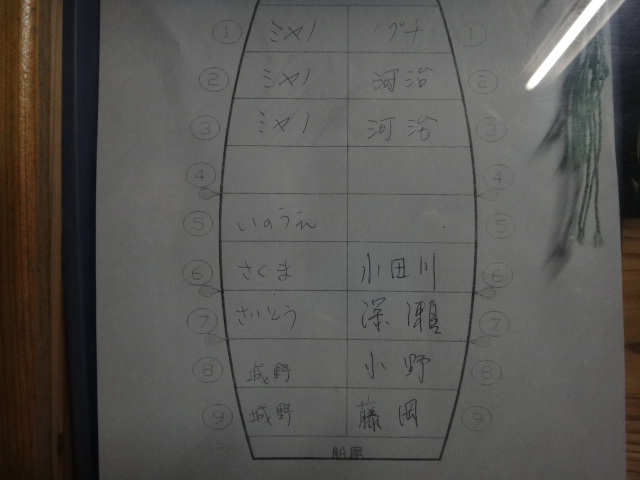 ① ミヤノ ①
② ミヤノ 河沿 ②
③ ミヤノ 河沿 ③
④ ④
⑤ いのうえ ⑤
⑥ さくま 小田川 ⑥
⑦ さいとう 深瀬 ⑦
⑧ 城野 小野 ⑧
⑨ 城野 藤岡 ⑨
船尾